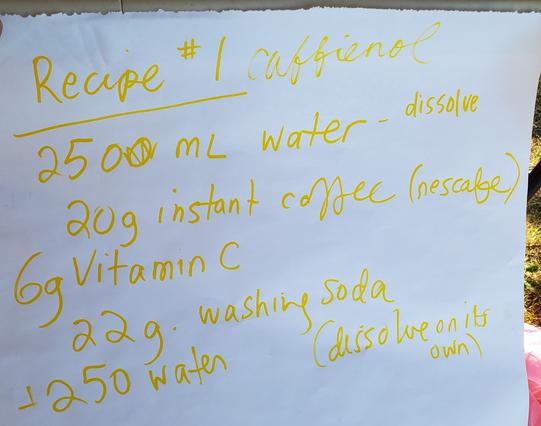 Recipe #1 caffienol
250 mL water - dissolve
20g instant coffee (nescafe)
6g Vitamin C
22g. washing soda
(dissolve on its own)
+250 water